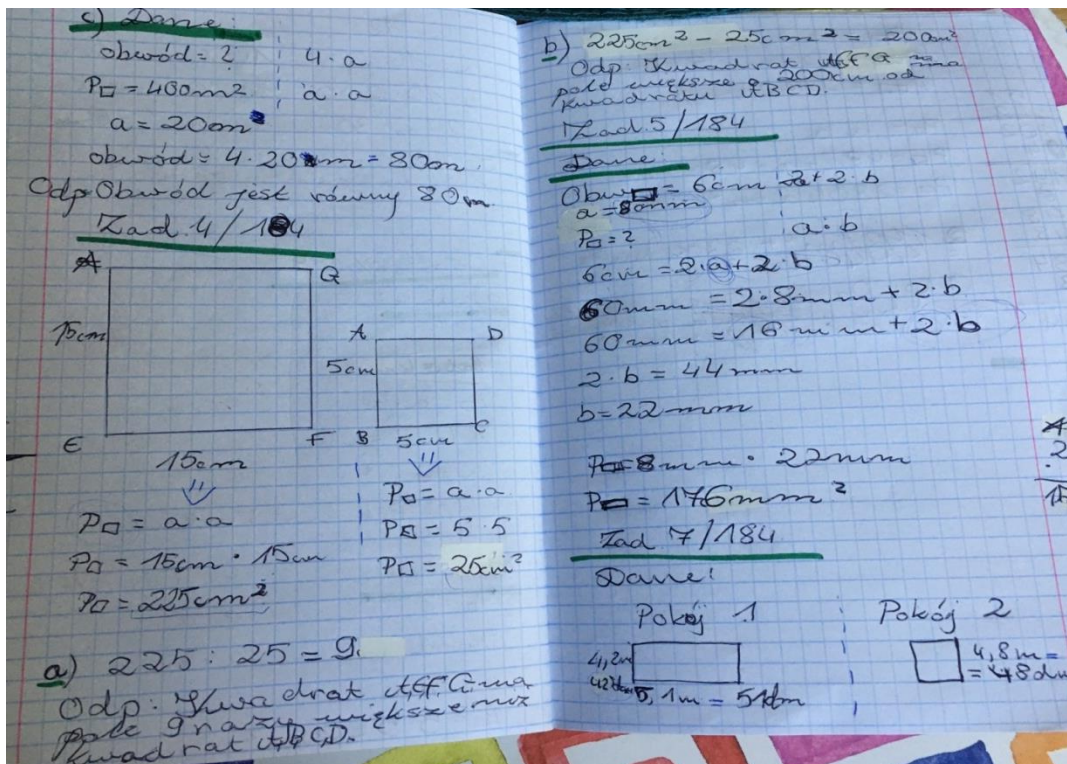 c) Dane:
obwód = ? 4 · a
P□ = 400m² a · a
a = 20m
obwód = 4 · 20m = 80m
Odp. Obwód jest równy 80m.
Zad. 4/184
A G
15cm
E F
15cm
A D
5cm
B C
5cm
P□ = a · a
P□ = 15cm · 15cm
P□ = 225cm²
P□ = a · a
P□ = 5 · 5
P□ = 25cm²
a) 225 : 25 = 9.
Odp. Kwadrat AEFG ma
pole 9 razy większe niż
kwadrat ABCD.
b) 225cm² - 25cm² = 200cm²
Odp. Kwadrat AEFG ma
pole większe o 200cm od
kwadratu ABCD.
Zad. 5/184
Dane:
Obw▭ = 6cm 2a + 2 · b
a = 8mm
P□ = ? a · b
6cm = 2 · a + 2 · b
60mm = 2 · 8mm + 2 · b
60mm = 16mm + 2 · b
2 · b = 44mm
b = 22mm
P▭ = 8mm · 22mm
P▭ = 176mm²
Zad 7/184
Dane:
Pokój 1 Pokój 2
4,2m
5,1m = 51dm
4,8m =
= 48dm